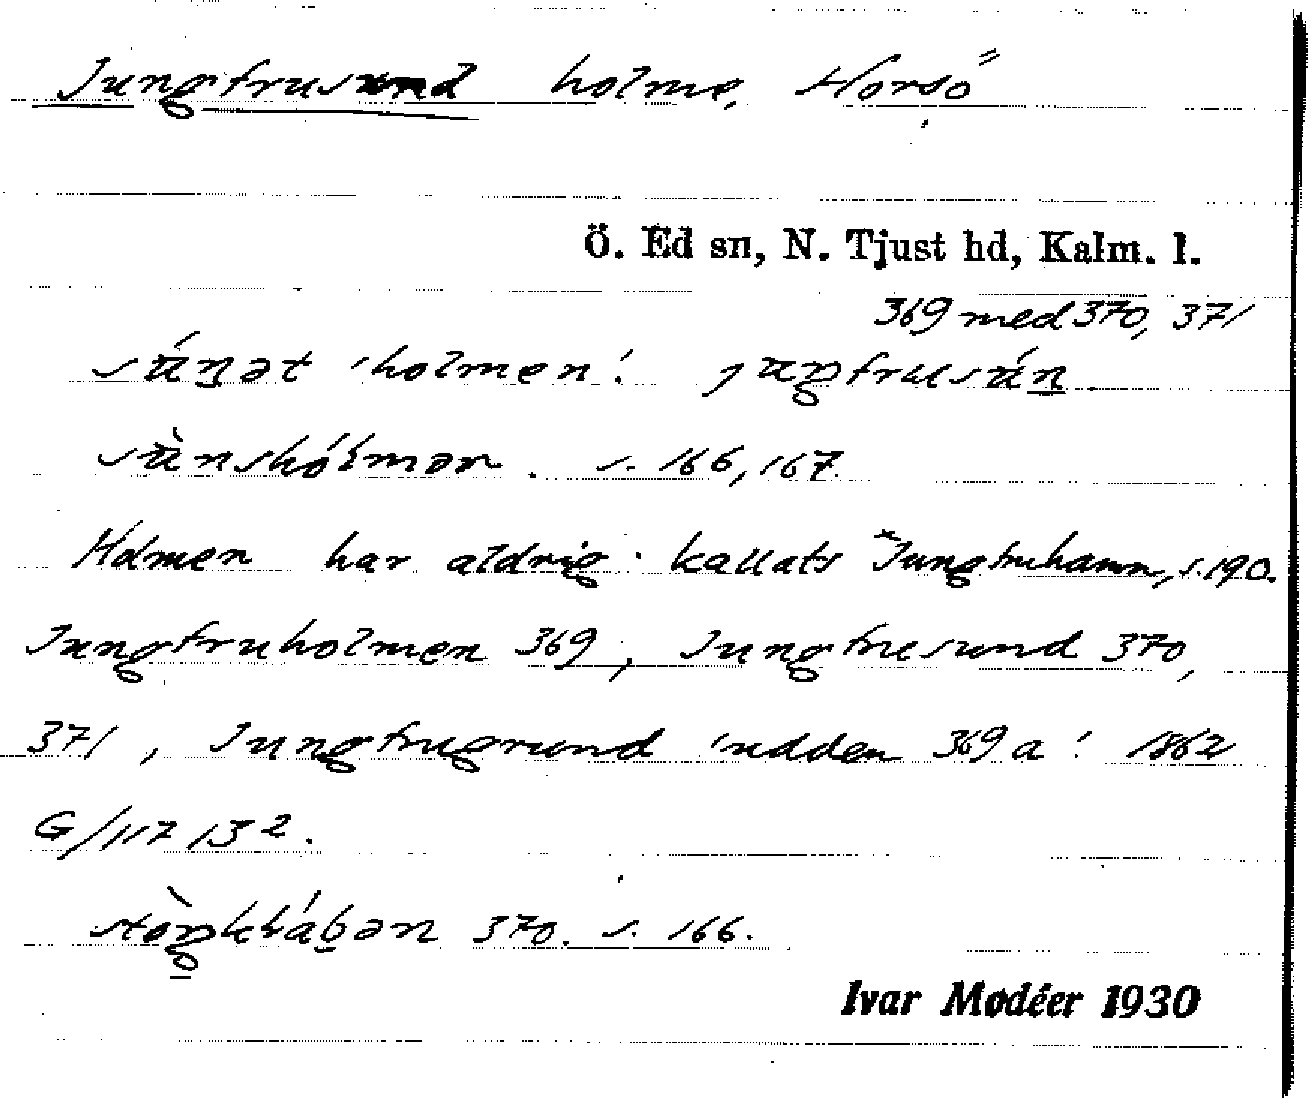 Jungfrusund holme, Horsö
Ö. Ed sn, N. Tjust hd, Kalm. l.
369 med 370, 371
súṉət 'holmen'. juŋfrusúṉ.
sùnshólmən. s. 166, 167.
Holmen har aldrig kallats *Jungfruhamn, s. 190.
Jungfruholmen 369, Jungfrusund 370,
371, Jungfrugrund 'udden 369 a' 1862
G/117 13².
370. s. 166.
Ivar Modéer 1930